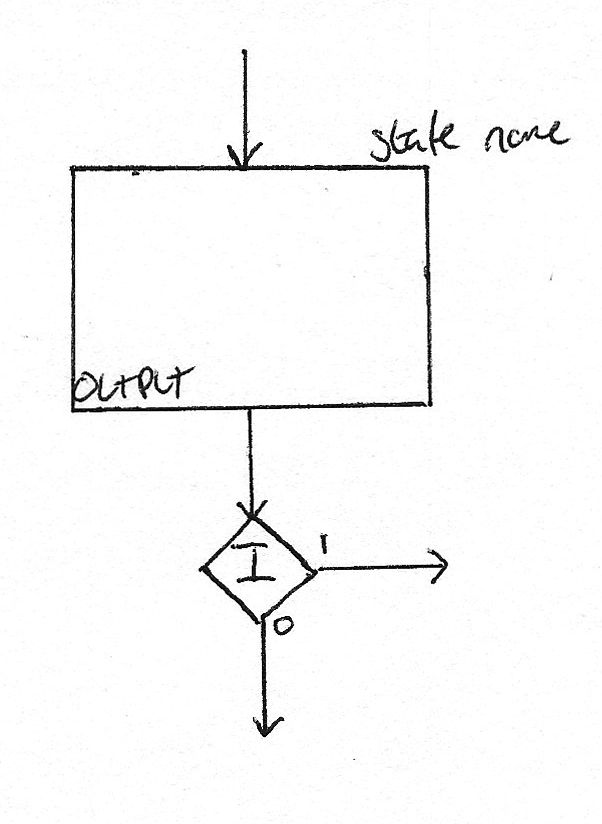 state name
OUTPUT
I
1
0